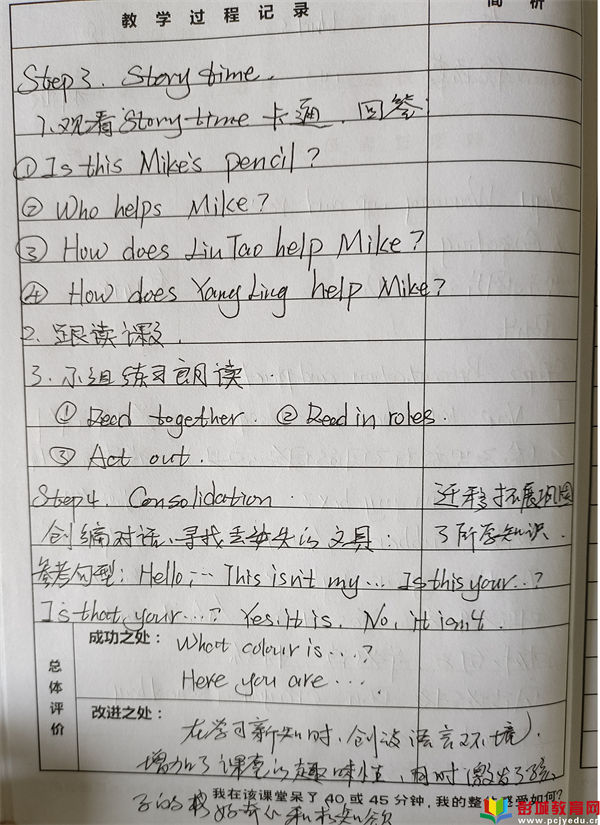 教学过程记录 简析
Step3. Story time.
1.观看Story time 卡通，回答：
①Is this Mike's pencil?
② Who helps Mike?
③ How does Liu Tao help Mike?
④ How does Yang Ling help Mike?
2. 跟读课文.
3. 小组练习朗读.
① Read together. ② Read in roles.
③ Act out.
Step4. Consolidation. 迁移拓展巩固
创编对话、寻找丢失的文具： 了所学知识.
参考句型：Hello,… This isn't my… Is this your…?
Is that your…? Yes, it is. No, it isn't.
成功之处： What colour is…?
Here you are….
总体评价
改进之处：
在学习新知时，创设语言环境，
增加了课堂的趣味性，同时激发了孩
我在该课堂呆了40或45分钟，我的整体感受如何？
子的 好奇心和求知欲
彭城教育网
www.pcjyedu.cn